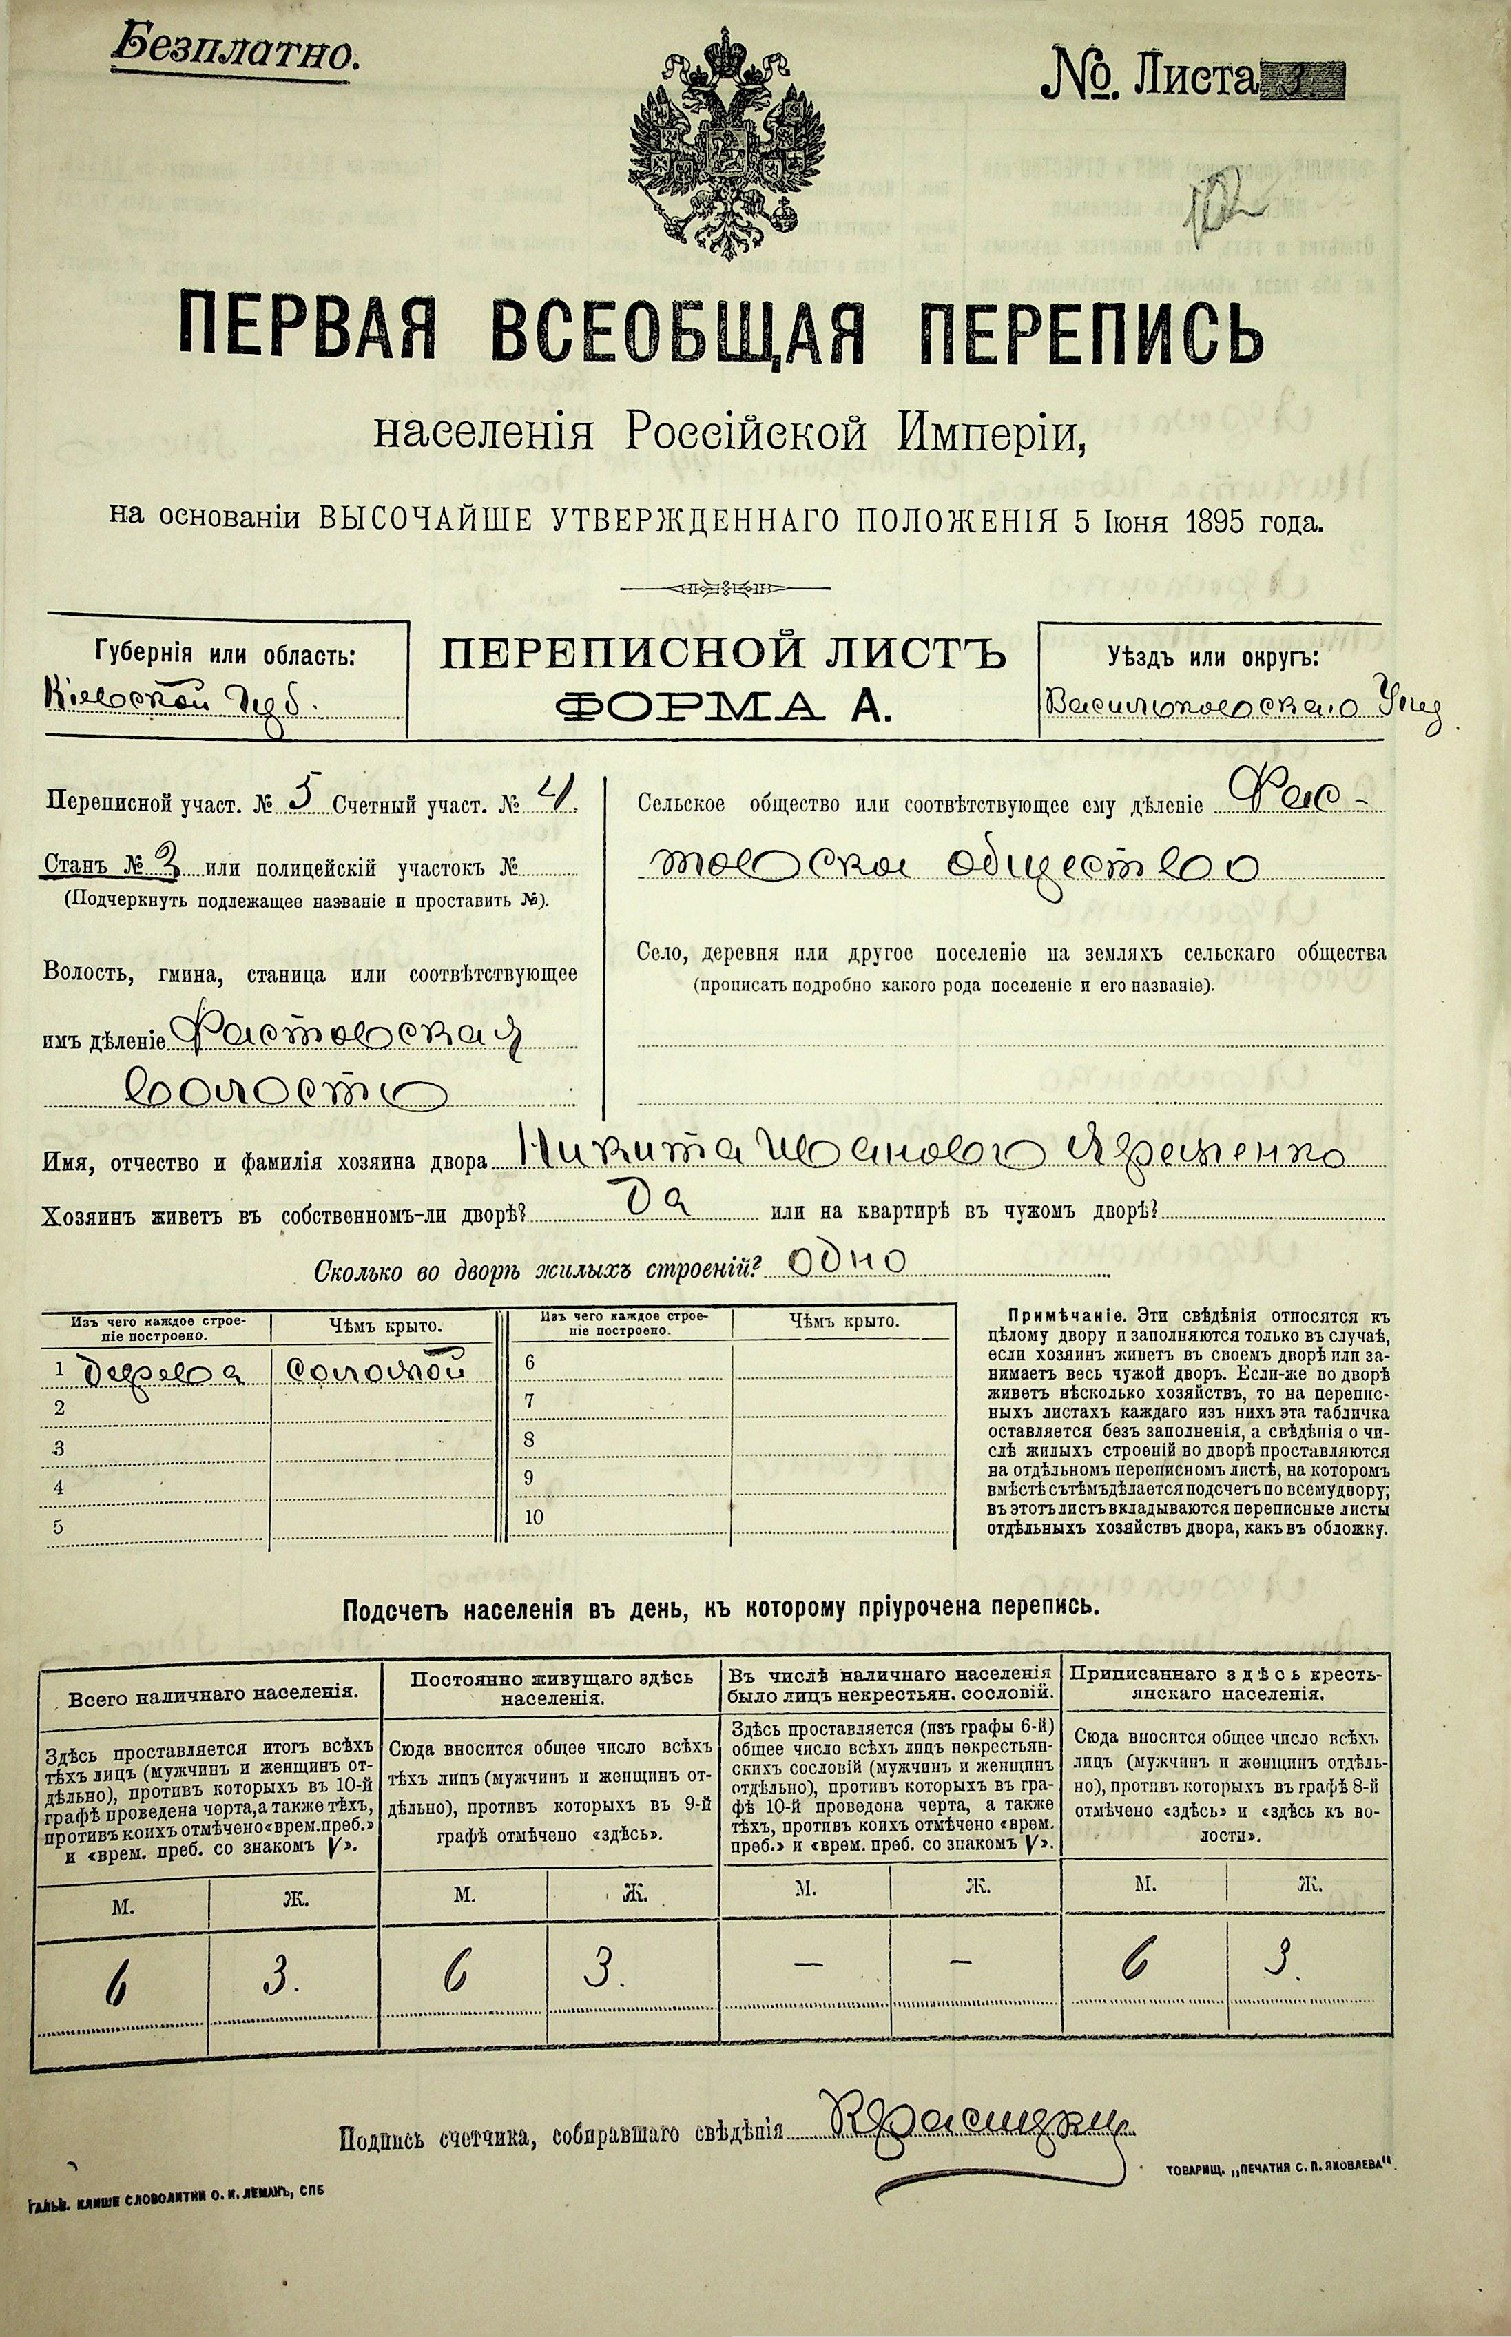 Безплатно.
№. Листа 3
ПЕРВАЯ ВСЕОБЩАЯ ПЕРЕПИСЬ
населенія Россійской Имперіи,
на основаніи ВЫСОЧАЙШЕ УТВЕРЖДЕННАГО ПОЛОЖЕНІЯ 5 Іюня 1895 года.
Губернія или область:
Кіевской Губ.
ПЕРЕПИСНОЙ ЛИСТЪ
ФОРМА А.
Уѣздъ или округъ:
Васильковскаго Уѣзд
Переписной участ. № 5 Счетный участ. № 4.
Станъ № 3 или полицейскій участокъ №
(Подчеркнуть подлежащее названіе и проставить №).
Волость, гмина, станица или соотвѣтствующее
имъ дѣленіе Фастовская
волость
Сельское общество или соотвѣтствующее ему дѣленіе Фас-
товское общество
Село, деревня или другое поселеніе на земляхъ сельскаго общества
(прописать подробно какого рода поселеніе и его названіе).
Имя, отчество и фамилія хозяина двора Никита Ивановъ
Хозяинъ живетъ въ собственномъ-ли дворѣ? Да или на квартирѣ въ чужомъ дворѣ?
Сколько во дворѣ жилыхъ строеній? одно
Изъ чего каждое строе-
ніе построено.
Чѣмъ крыто.
Изъ чего каждое строе-
ніе построено.
Чѣмъ крыто.
1 Дерева Соломой 6
2 7
3 8
4 9
5 10
Примѣчаніе. Эти свѣдѣнія относятся къ
цѣлому двору и заполняются только въ случаѣ,
если хозяинъ живетъ въ своемъ дворѣ или за-
нимаетъ весь чужой дворъ. Если-же во дворѣ
живетъ нѣсколько хозяйствъ, то на перепис-
ныхъ листахъ каждаго изъ нихъ эта табличка
оставляется безъ заполненія, а свѣдѣнія о чи-
слѣ жилыхъ строеній во дворѣ проставляются
на отдѣльномъ переписномъ листѣ, на которомъ
вмѣстѣ съ тѣмъ дѣлается подсчетъ по всему двору;
въ этотъ листъ вкладываются переписные листы
отдѣльныхъ хозяйствъ двора, какъ въ обложку.
Подсчетъ населенія въ день, къ которому пріурочена перепись.
Всего наличнаго населенія.
Постоянно живущаго здѣсь
населенія.
Въ числѣ наличнаго населенія
было лицъ некрестьян. сословій.
Приписаннаго здѣсь кресть-
янскаго населенія.
Здѣсь проставляется итогъ всѣхъ
тѣхъ лицъ (мужчинъ и женщинъ от-
дѣльно), противъ которыхъ въ 10-й
графѣ проведена черта, а также тѣхъ,
противъ коихъ отмѣчено «врем. преб.»
и «врем. преб. со знакомъ V».
Сюда вносится общее число всѣхъ
тѣхъ лицъ (мужчинъ и женщинъ от-
дѣльно), противъ которыхъ въ 9-й
графѣ отмѣчено «здѣсь».
Здѣсь проставляется (изъ графы 6-й)
общее число всѣхъ лицъ некрестьян-
скихъ сословій (мужчинъ и женщинъ
отдѣльно), противъ которыхъ въ гра-
фѣ 10-й проведена черта, а также
тѣхъ, противъ коихъ отмѣчено «врем.
преб.» и «врем. преб. со знакомъ V».
Сюда вносится общее число всѣхъ
лицъ (мужчинъ и женщинъ отдѣль-
но), противъ которыхъ въ графѣ 8-й
отмѣчено «здѣсь» и «здѣсь къ во-
лости».
М. Ж. М. Ж. М. Ж. М. Ж.
6 3. 6 3. — — 6 3.
Подпись счетчика, собиравшаго свѣдѣнія
ГАЛЬВ. КЛИШЕ СЛОВОЛИТНИ О. И. ЛЕМАНЪ, СПБ
ТОВАРИЩ. „ПЕЧАТНЯ С. П. ЯКОВЛЕВА".